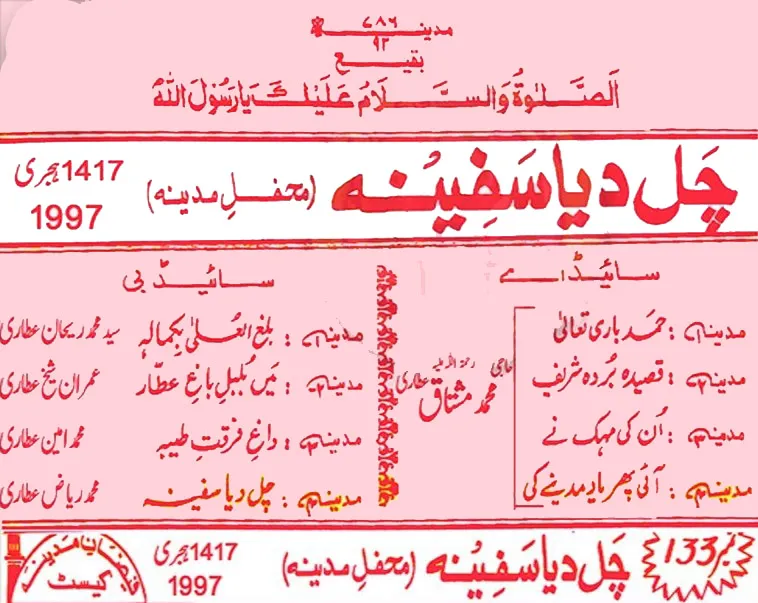 مدینہ ۷۸۶
۹۲
بقیع
اَلصَّلٰوۃُ وَالسَّلَامُ عَلَیْكَ یَا رَسُوْلَ اللّٰہ
چَل دیا سَفِیْنہ (محفلِ مدینہ) 1417 ہجری
1997
سائیڈ اے
مدینہ ۱ : حمدِ باری تعالیٰ
مدینہ ۲ : قصیدہ بُردہ شریف
مدینہ ۳ : اُن کی مہک نے
مدینہ ۴ : آئی پھر یاد مدینے کی
حاجی محمد مشتاق عطاری رحمۃ اللہ علیہ
سائیڈ بی
مدینہ ۱ : بلغ العُلیٰ بِکمالہٖ سید محمد ریحان عطاری
مدینہ ۲ : میں بُلبلِ باغِ عطّار عمران شیخ عطاری
مدینہ ۳ : داغِ فرقتِ طیبہ محمد امین عطاری
مدینہ ۴ : چل دیا سفینہ محمد ریاض عطاری
نمبر 133 چَل دیا سَفِیْنہ (محفلِ مدینہ) 1417 ہجری
1997
فیضانِ مدینہ
کیسٹ